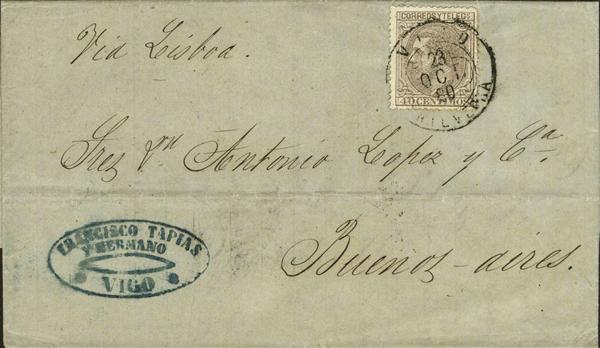 CORREOS Y TELEGS
Via Lisboa.
23
OCT
80
40 CENTIMOS
Sres Dn Antonio Lopez y Ca.
FRANCISCO TAPIAS
Y HERMANO
VIGO
Buenos-aires.